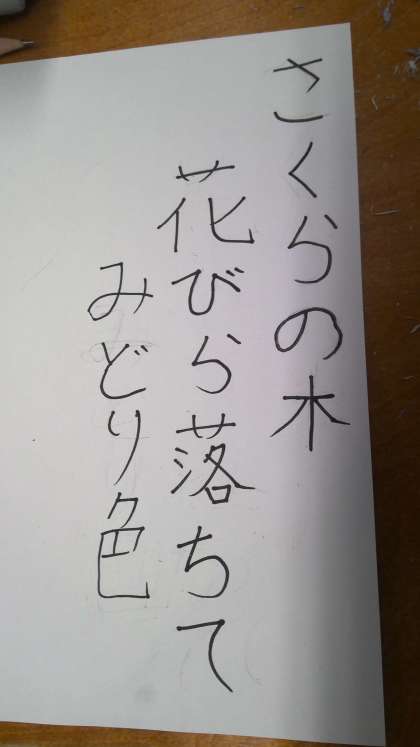 さくらの木
花びら落ちて
みどり色